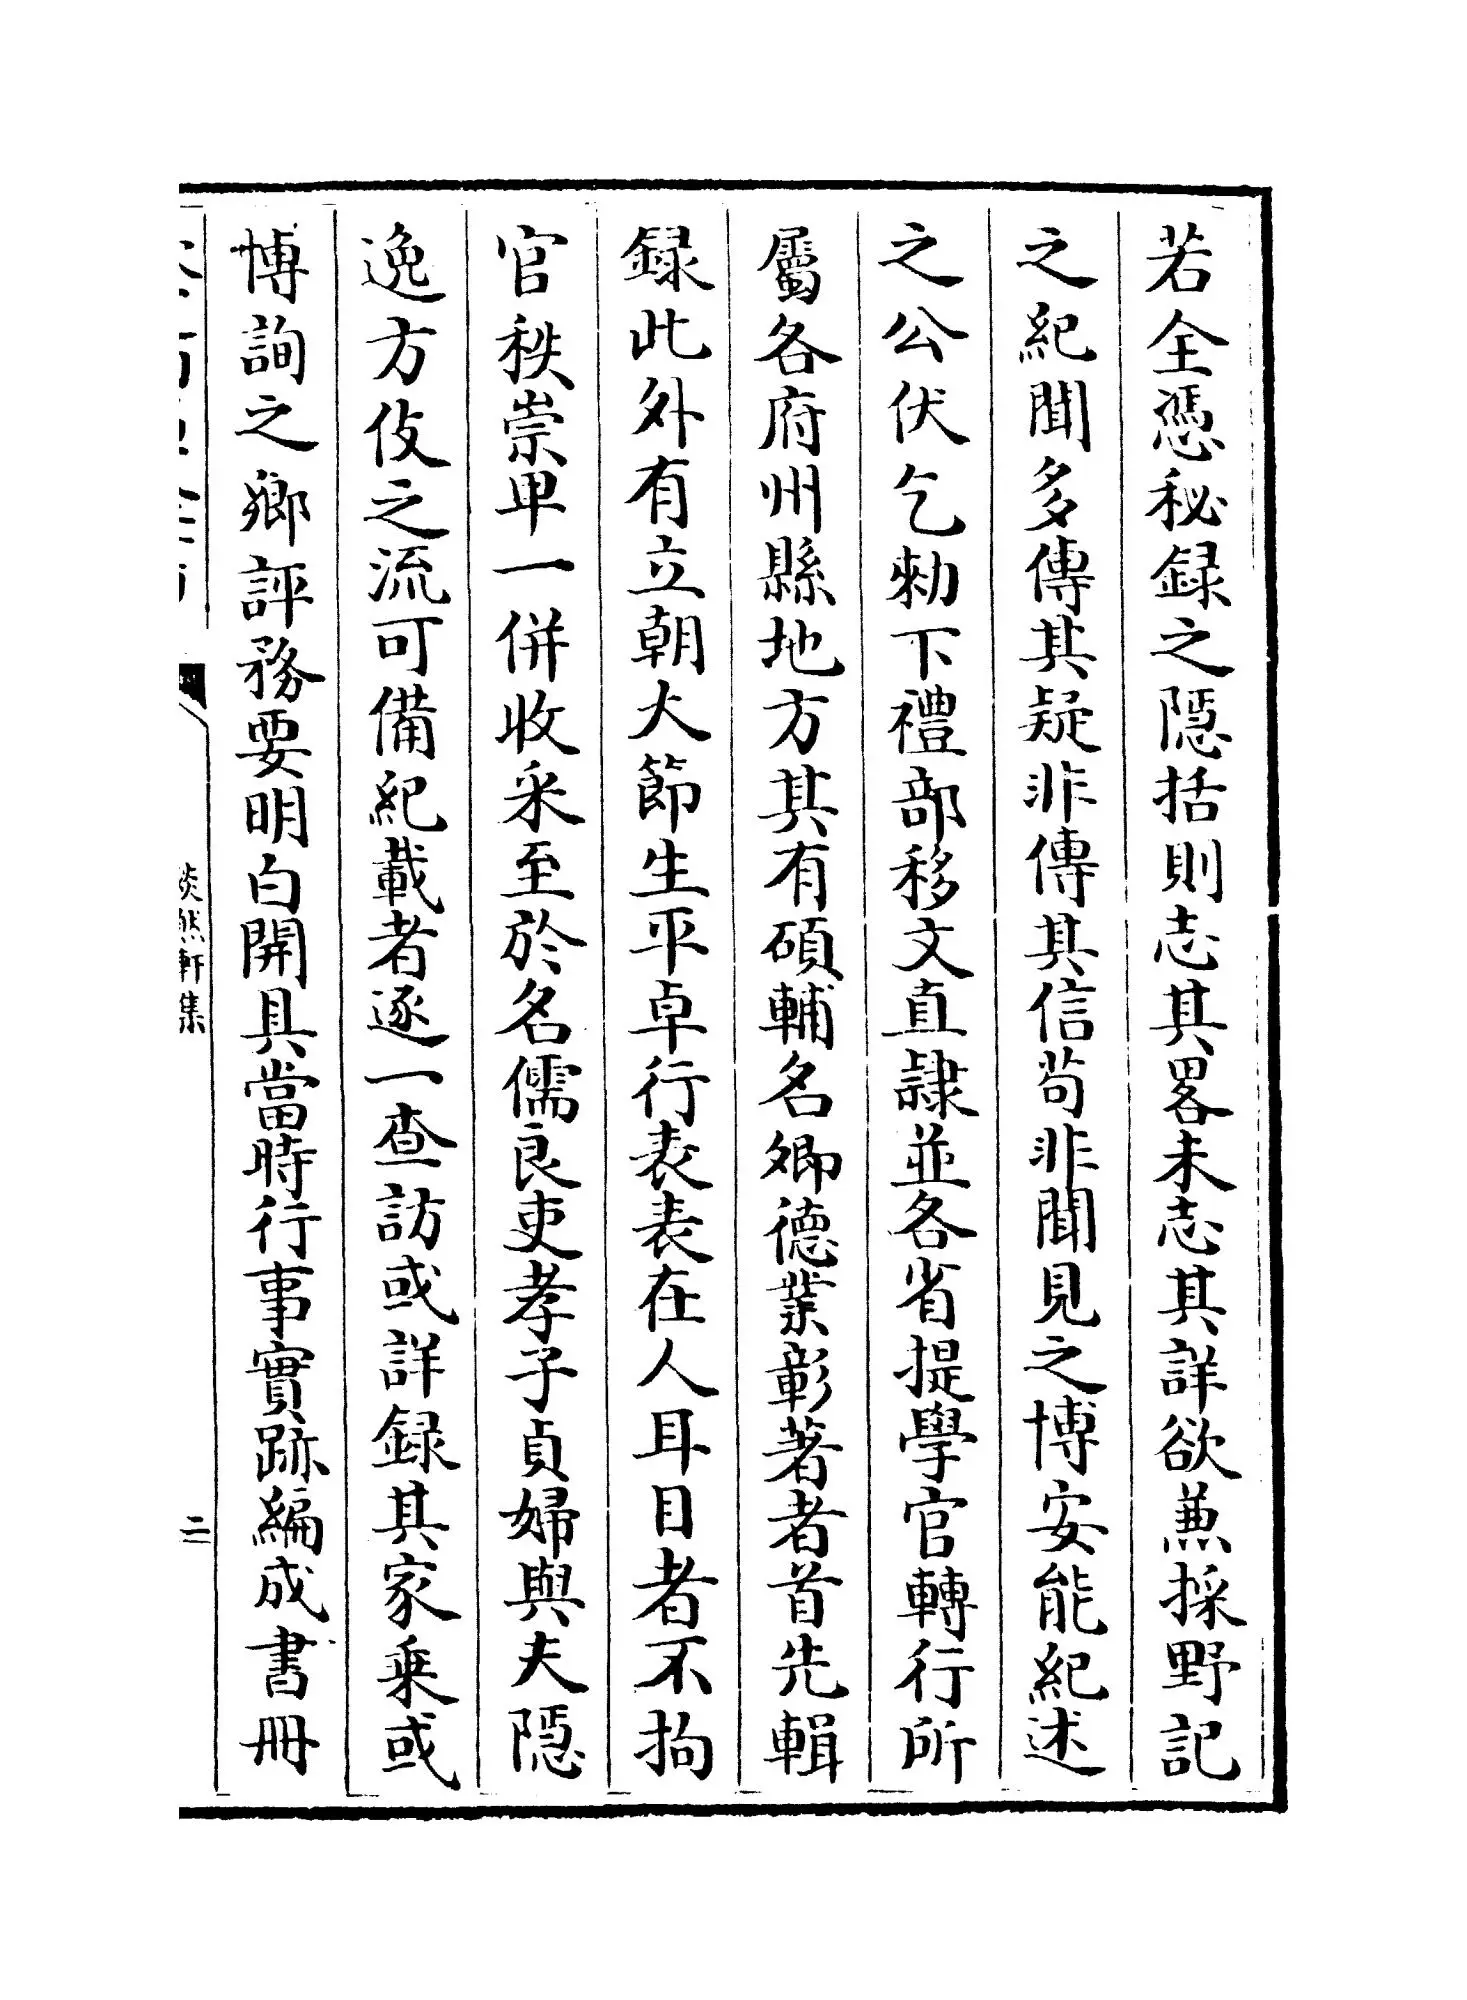 若全憑秘録之隠括則志其畧未志其詳欲兼採野記
之紀聞多傳其疑非傳其信苟非聞見之博安能紀述
之公伏乞勅下禮部移文直隷並各省提學官轉行所
屬各府州縣地方其有碩輔名卿德業彰著者首先輯
録此外有立朝大節生平卓行表表在人耳目者不拘
官秩崇卑一併收采至於名儒良吏孝子貞婦與夫隠
逸方伎之流可備紀載者逐一查訪或詳録其家乗或
博詢之鄉評務要明白開具當時行事實跡編成書冊
淡然軒集
二